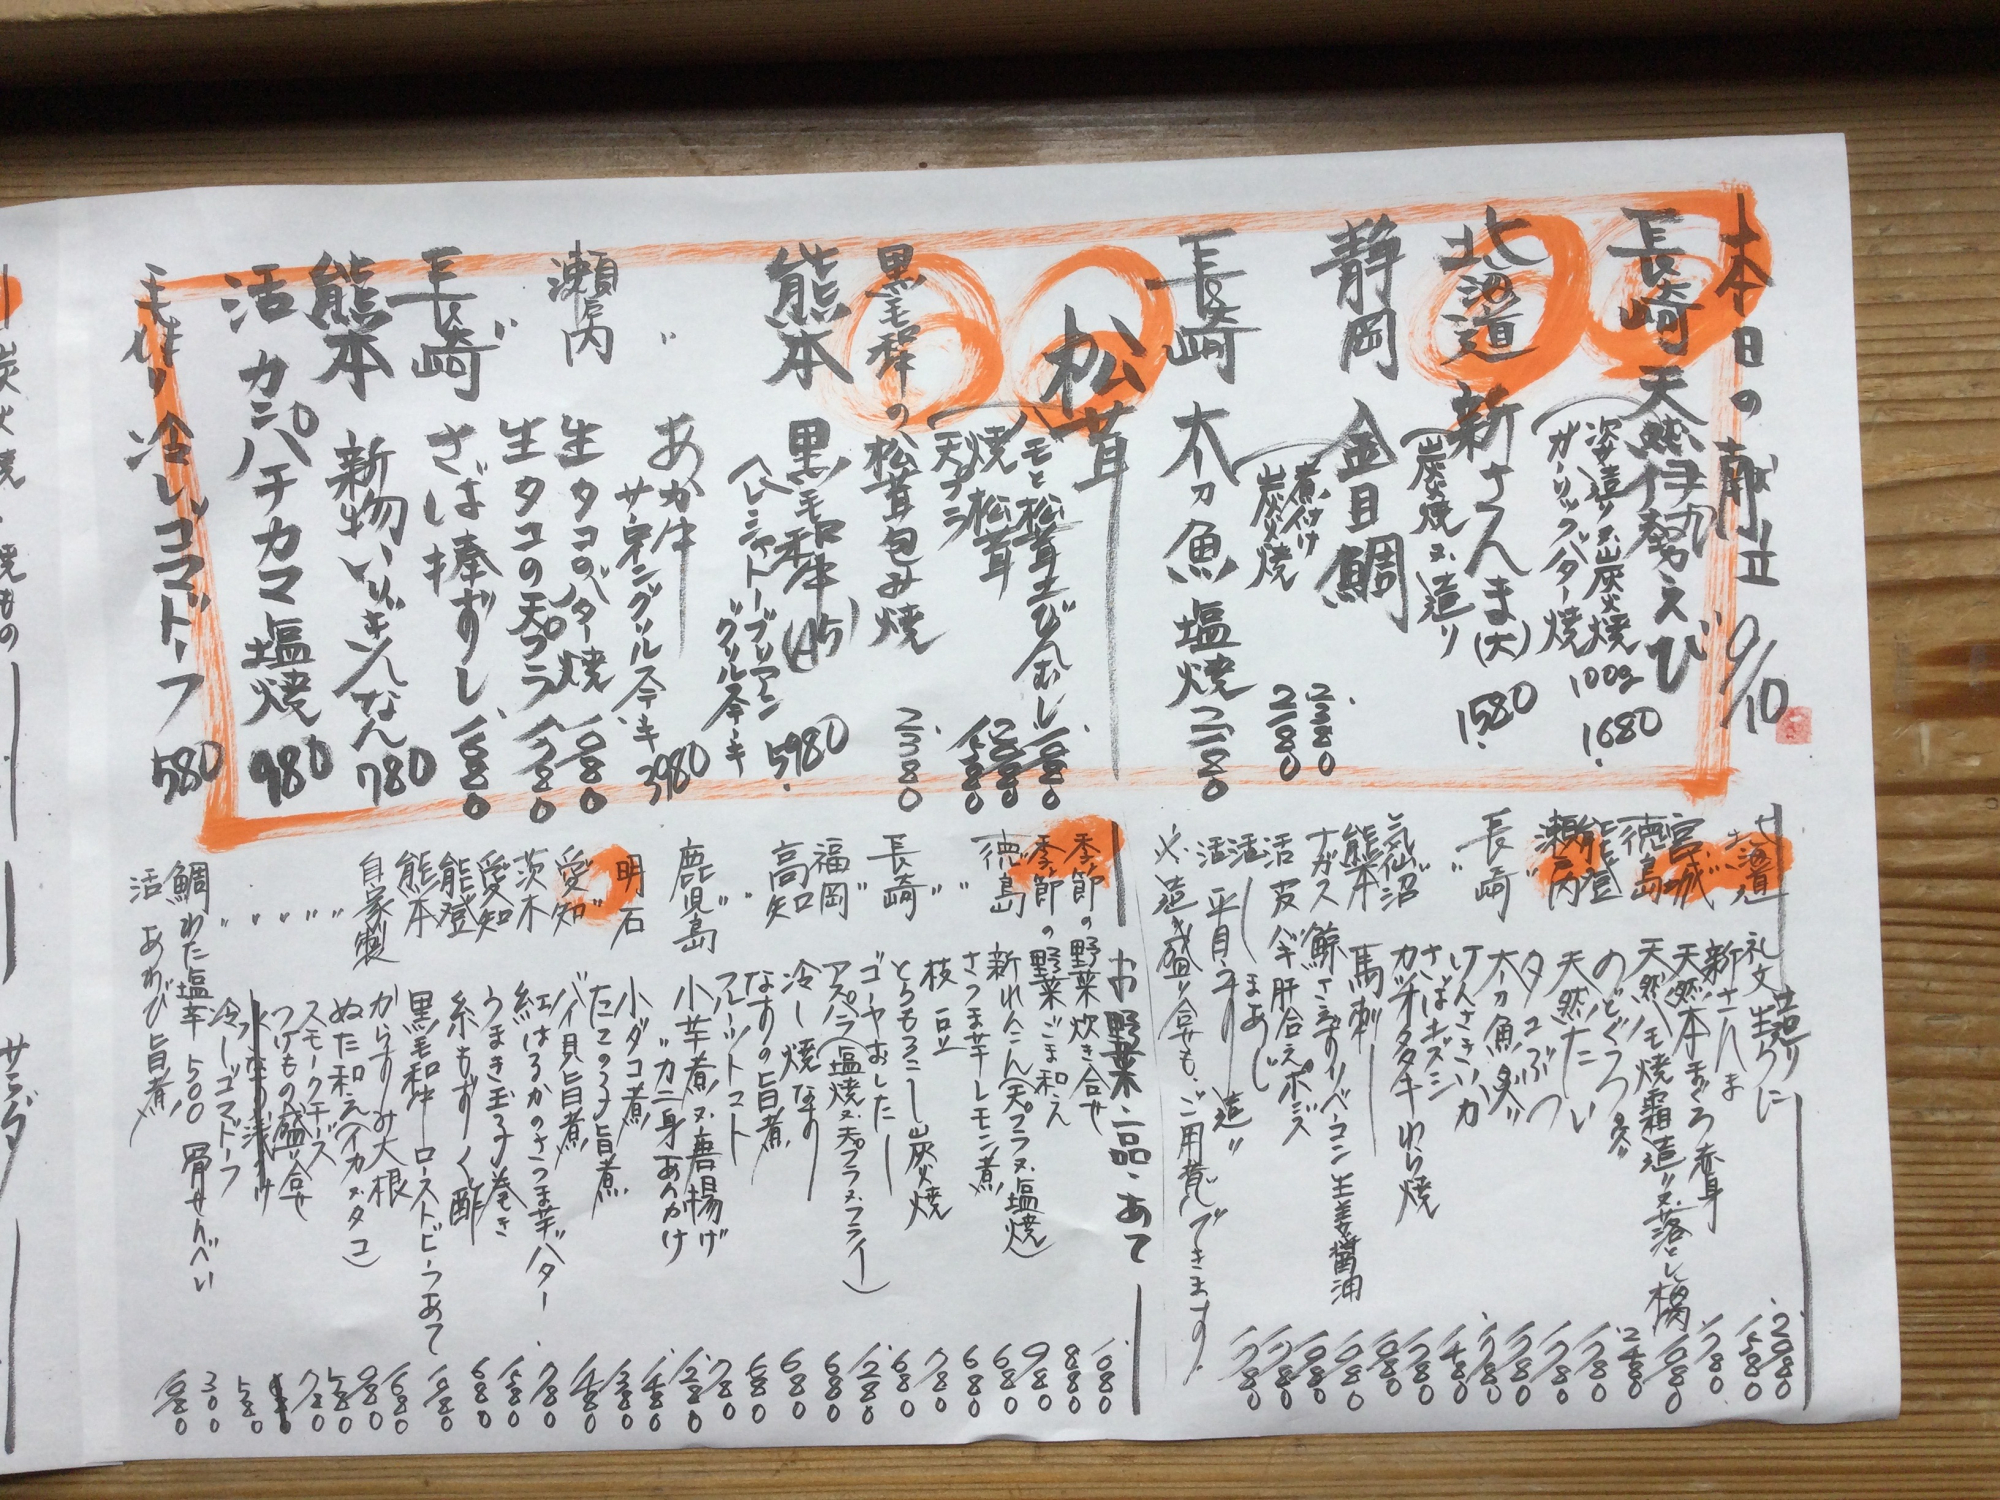 本日の献立 9/10
長崎 天然伊勢えび
姿造り又炭火焼 100g 1680
ガーリックバター焼
北海道 新さんま(大) 1580
炭火焼又造り
静岡 金目鯛
煮付け 2380
炭火焼 2180
長崎 太刀魚塩焼 2180
松茸
ハモと松茸土びんむし 1680
焼松茸 2880
天プラ 1580
黒毛和牛の松茸包み焼 2380
熊本 黒毛和牛(A5) 5980
(シャトーブリアン
グリルステーキ
〃 あか牛 3980
サーロイングリルステーキ
瀬戸内 生タコのバター焼 1080
〃 生タコの天プラ 1780
長崎 さば棒ずし 1680
熊本 新物いりぎんなん 780
活カンパチカマ塩焼 980
手作り冷しゴマドーフ 580
造り
北海道 礼文生うに 2080
〃 新さんま 1580
宮城 天然本まぐろ赤身 1780
徳島 天然ハモ焼霜造り又落とし梅 1080
能登 のどぐろ 〃 2480
瀬戸内 天然たい 1780
〃 タコぶつ 1780
長崎 太刀魚炙り 1780
〃 けんさきいか 1780
〃 さばキズシ 1480
気仙沼 カツオタタキわら焼 1780
熊本 馬刺し 1080
ナガス鯨さえずり/ベーコン生姜醤油 1080
活皮ハギ肝合えポン酢 1080
活しまあじ 1780
活平目うす造り 1780
※造り盛り合せも、ご用意できます
お野菜・一品・あて
季節の野菜炊き合せ 1080
季節の野菜ごま和え 880
徳島 新れんこん(天プラ又塩焼) 980
〃 さつま芋レモン煮 680
〃 枝豆 680
長崎 とうもろこし炭火焼 780
〃 ゴーヤおしたし 680
福岡 アスパラ(塩焼又天プラ又フライ) 1280
高知 冷し焼なす 680
〃 なすの旨煮 680
〃 フルーツトマト 680
鹿児島 小芋煮又唐揚げ 780
〃 カニ身あんかけ 1280
明石 小ダコ煮 1480
たこの子旨煮 1380
愛知 バイ貝旨煮 1480
茨木 紅はるかのさつま芋バター 780
愛知 うまき玉子巻き 1580
能登 糸もずく酢 680
熊本 黒毛和牛ローストビーフあて 1080
自家製 からすみ大根 1680
〃 ぬた和え(イカ又タコ) 980
〃 スモークチーズ 580
〃 つけもの盛り合せ 780
〃 冷しゴマドーフ 580
鯛わた塩辛 500 骨せんべい 300
活あわび旨煮 1080
炭火焼・焼もの
サラダ